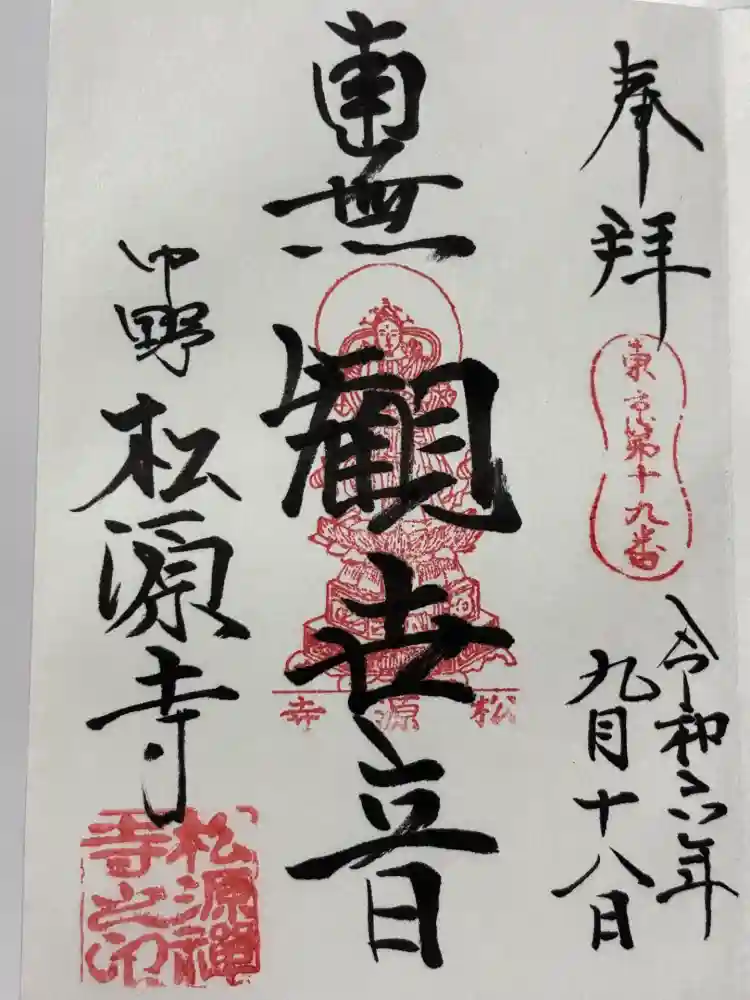 奉拝
東方第十九番
令和六年
九月十八日
南無
觀世音
松源寺
中野
松源寺
松源禅
寺之印